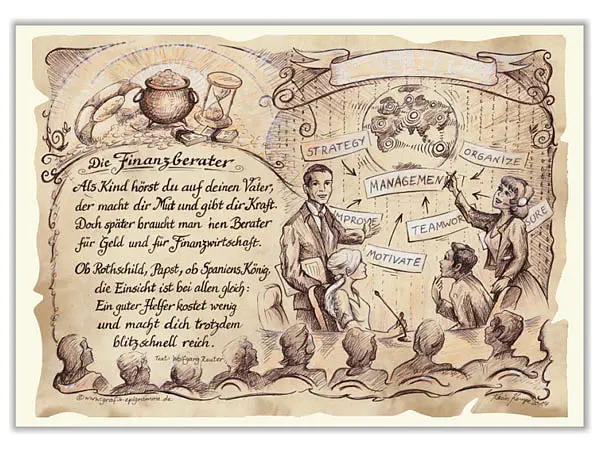 Die Finanzberater
Als Kind hörst du auf deinen Vater,
der macht dir Mut und gibt dir Kraft.
Doch später braucht man nen Berater
für Geld und für Finanzwirtschaft.
Ob Rothschild, Papst, ob Spaniens König,
die Einsicht ist bei allen gleich:
Ein guter Helfer kostet wenig
und macht dich trotzdem
blitzschnell reich.
Text: Wolfgang Reuter
©www.grafik-epigramme.de
STRATEGY
ORGANIZE
MANAGEMEN
MPROVE
TEAMWOR
URE
MOTIVATE